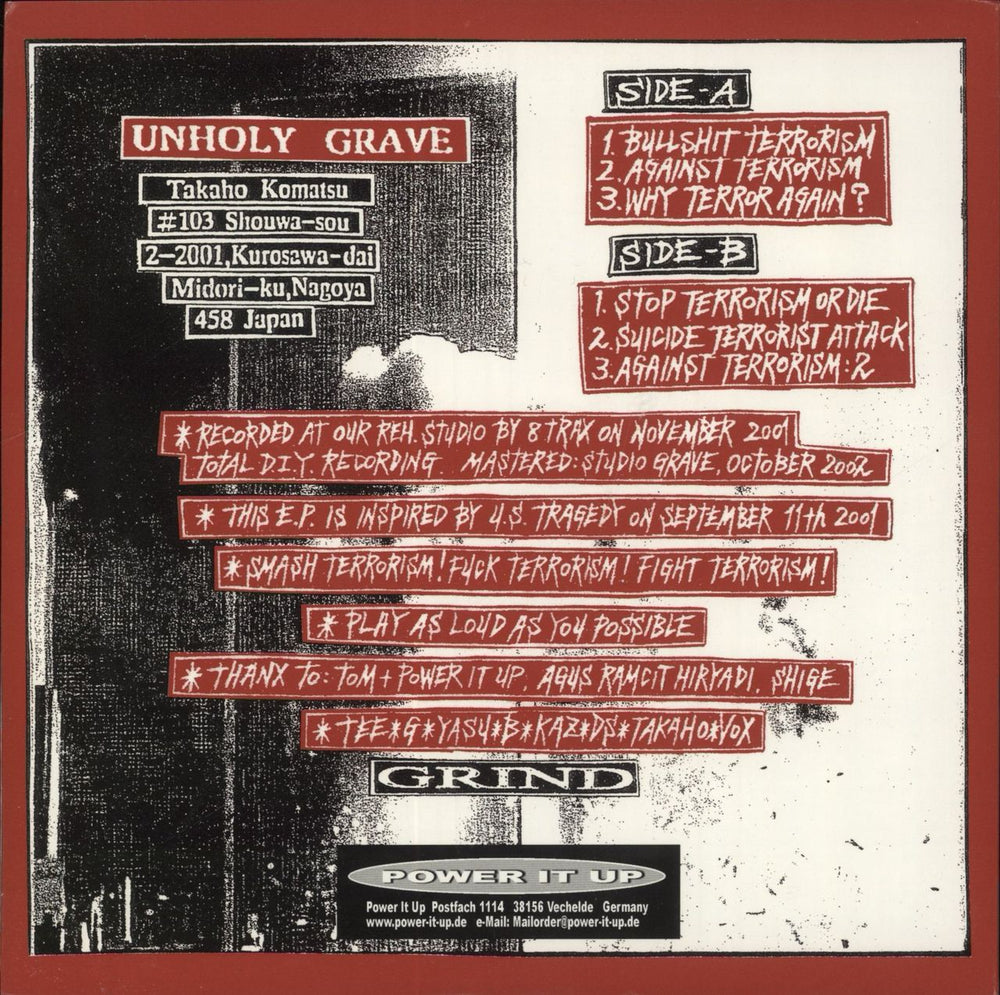 UNHOLY GRAVE
Takaho Komatsu
#103 Shouwa-sou
2-2001,Kurosawa-dai
Midori-ku,Nagoya
458 Japan
SIDE-A
1. BULLSHIT TERRORISM
2. AGAINST TERRORISM
3. WHY TERROR AGAIN?
SIDE-B
1. STOP TERRORISM OR DIE
2. SUICIDE TERRORIST ATTACK
3. AGAINST TERRORISM:2
* RECORDED AT OUR REH. STUDIO BY 8 TRAX ON NOVEMBER 2001
TOTAL D.I.Y. RECORDING. MASTERED: STUDIO GRAVE, OCTOBER 2002
* THIS E.P. IS INSPIRED BY U.S. TRAGEDY ON SEPTEMBER 11th 2001
* SMASH TERRORISM! FUCK TERRORISM! FIGHT TERRORISM!
* PLAY AS LOUD AS YOU POSSIBLE
* THANX TO: TOM + POWER IT UP, AGUS RAMCIT HIRYADI, SHIGE
* TEE*G*YASU*B*KAZ*DS*TAKAHO*VOX
GRIND
POWER IT UP
Power It Up Postfach 1114 38156 Vechelde Germany
www.power-it-up.de e-Mail: Mailorder@power-it-up.de